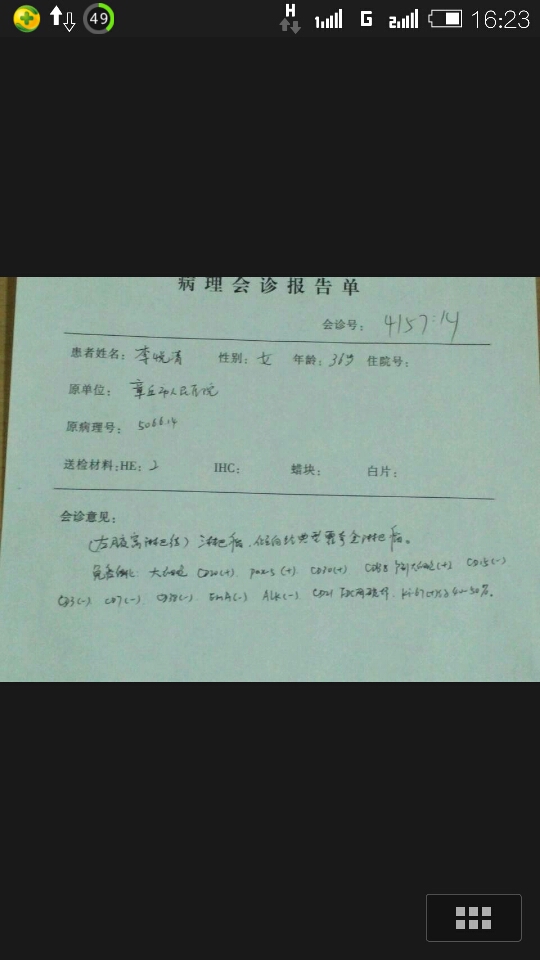 49 H 1 G 2 16:23
病理会诊报告单
会诊号: 4157:14
患者姓名: 李悦清 性别: 女 年龄: 36岁 住院号:
原单位: 章丘市人民医院
原病理号: 5066.14
送检材料:HE: 2 IHC: 蜡块: 白片:
会诊意见:
(左腹股沟淋巴结) 淋巴瘤, 倾向经典型霍奇金淋巴瘤。
免疫组化 大细胞 CD20(+) pax-5(+) CD30(+) 大细胞(+) CD15(-)
CD3(-) CD7(-) EmA(-) ALK(-) CD21 Ki-67(+) 40-50%。